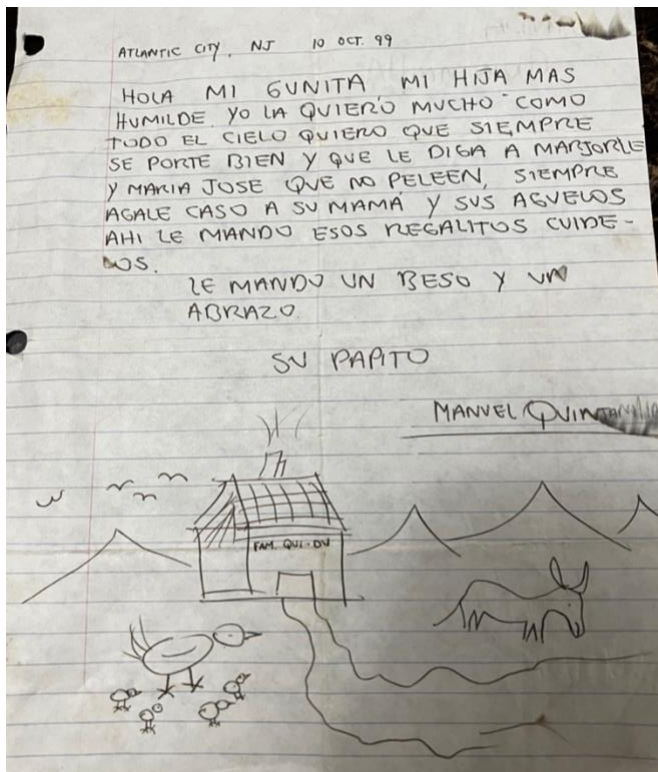 ATLANTIC CITY, NJ 10 OCT. 99
HOLA MI GUNITA MI HIJA MAS
HUMILDE. YO LA QUIERO MUCHO COMO
TODO EL CIELO QUIERO QUE SIEMPRE
SE PORTE BIEN Y QUE LE DIGA A MARJORLE
Y MARIA JOSE QUE NO PELEEN, SIEMPRE
AGALE CASO A SU MAMÁ Y SUS AGUELOS
AHI LE MANDO ESOS REGALITOS CUIDE-
LOS.
LE MANDO UN BESO Y UN
ABRAZO.
SU PAPITO
MANUEL QUINTANILLA
FAM. QUI-DU